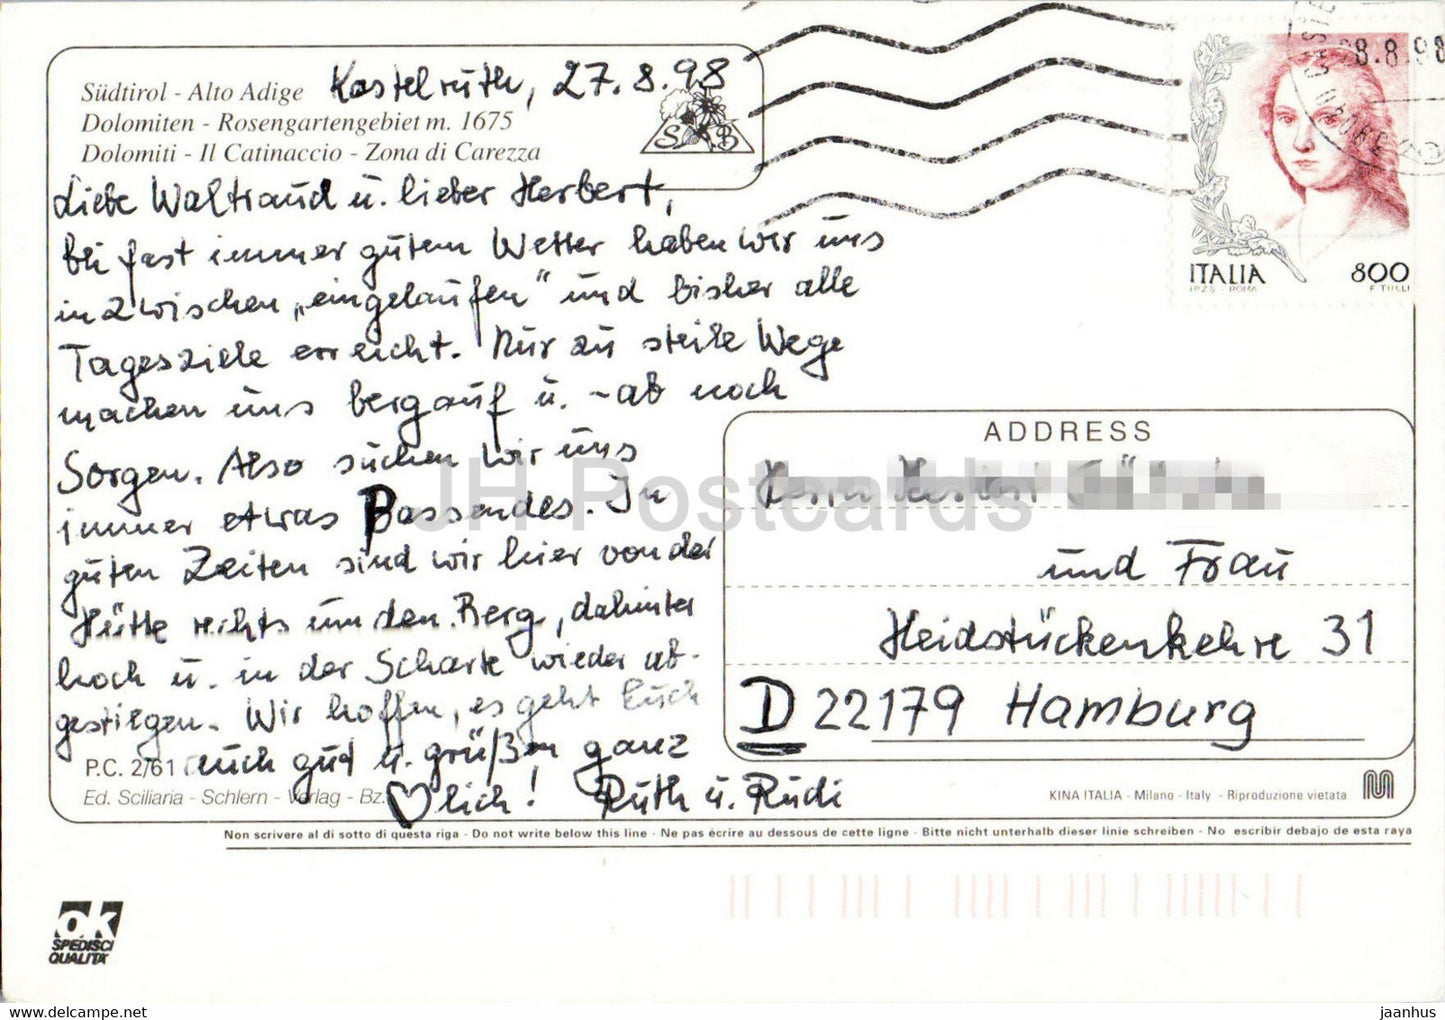 Südtirol - Alto Adige
Kastelruth, 27.8.98
Dolomiten - Rosengartengebiet m. 1675
Dolomiti - Il Catinaccio - Zona di Carezza
S B
Liebe Waltraud u. lieber Herbert,
bei fast immer gutem Wetter haben wir uns
inzwischen „eingelaufen“ und bisher alle
Tagesziele erreicht. Nur zu steile Wege
machen uns bergauf u. -ab noch
Sorgen. Also suchen wir uns
immer etwas Passendes. In
guten Zeiten sind wir hier von der
Hütte rechts um den Berg, dahinter
hoch u. in der Scharte wieder ab-
gestiegen. Wir hoffen, es geht Euch
auch gut u. grüßen ganz
♡lich! Ruth u. Rudi
P.C. 2/61
Ed. Sciliaria - Schlern - Verlag - Bz.
ITALIA 800
I.P.Z.S. - ROMA F. TULLI
8.8.98
ADDRESS
Herrn Herbert
und Frau
Heidstückenkehre 31
D 22179 Hamburg
KINA ITALIA - Milano - Italy - Riproduzione vietata
Non scrivere al di sotto di questa riga - Do not write below this line - Ne pas écrire au dessous de cette ligne - Bitte nicht unterhalb dieser linie schreiben - No escribir debajo de esta raya
OK
SPEDISCI
QUALITA'
JH Postcards
www.delcampe.net
jaanhus